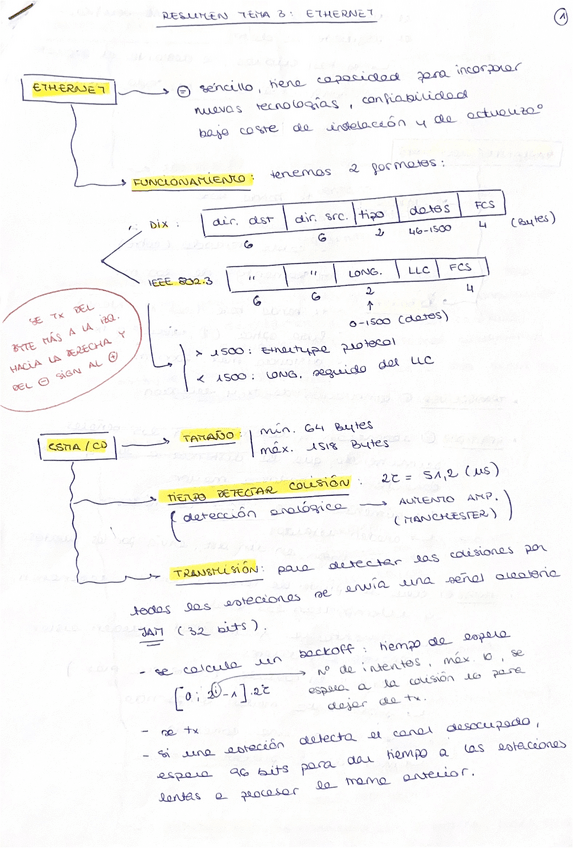 RESUMEN TEMA 3: ETHERNET
1
ETHERNET → ⊖ sencillo, tiene capacidad para incorporar
nuevas tecnologías, confiabilidad
bajo coste de instalación y de actualizaº
FUNCIONAMIENTO: tenemos 2 formatos:
DIX: dir. dst | dir. src. | tipo | datos | FCS
6 6 2 46-1500 4 (Bytes)
IEEE 802.3 " | " | LONG. | LLC | FCS
6 6 2 4
0-1500 (datos)
> 1500: Ethertype protocol
< 1500: LONG. seguido del LLC
SE TX DEL
BYTE MÁS A LA IZQ.
HACIA LA DERECHA Y
DEL ⊖ SIGN AL ⊕
CSMA/CD → TAMAÑO: mín. 64 Bytes
máx. 1518 Bytes
TIEMPO DETECTAR COLISIÓN: 2τ = 51,2 (μs)
(detección analógica → AUMENTO AMP.
(MANCHESTER))
TRANSMISIÓN: para detectar las colisiones por
todas las estaciones se envía una señal aleatoria
JAM (32 bits).
- se calcula un backoff: tiempo de espera
[0; 2^i-1]·2τ → Nº de intentos, máx. 10, se
espera a la colisión 16 para
dejar de tx.
- se tx
- Si una estación detecta el canal desocupado,
espera 96 bits para dar tiempo a las estaciones
lentas a procesar la trama anterior.